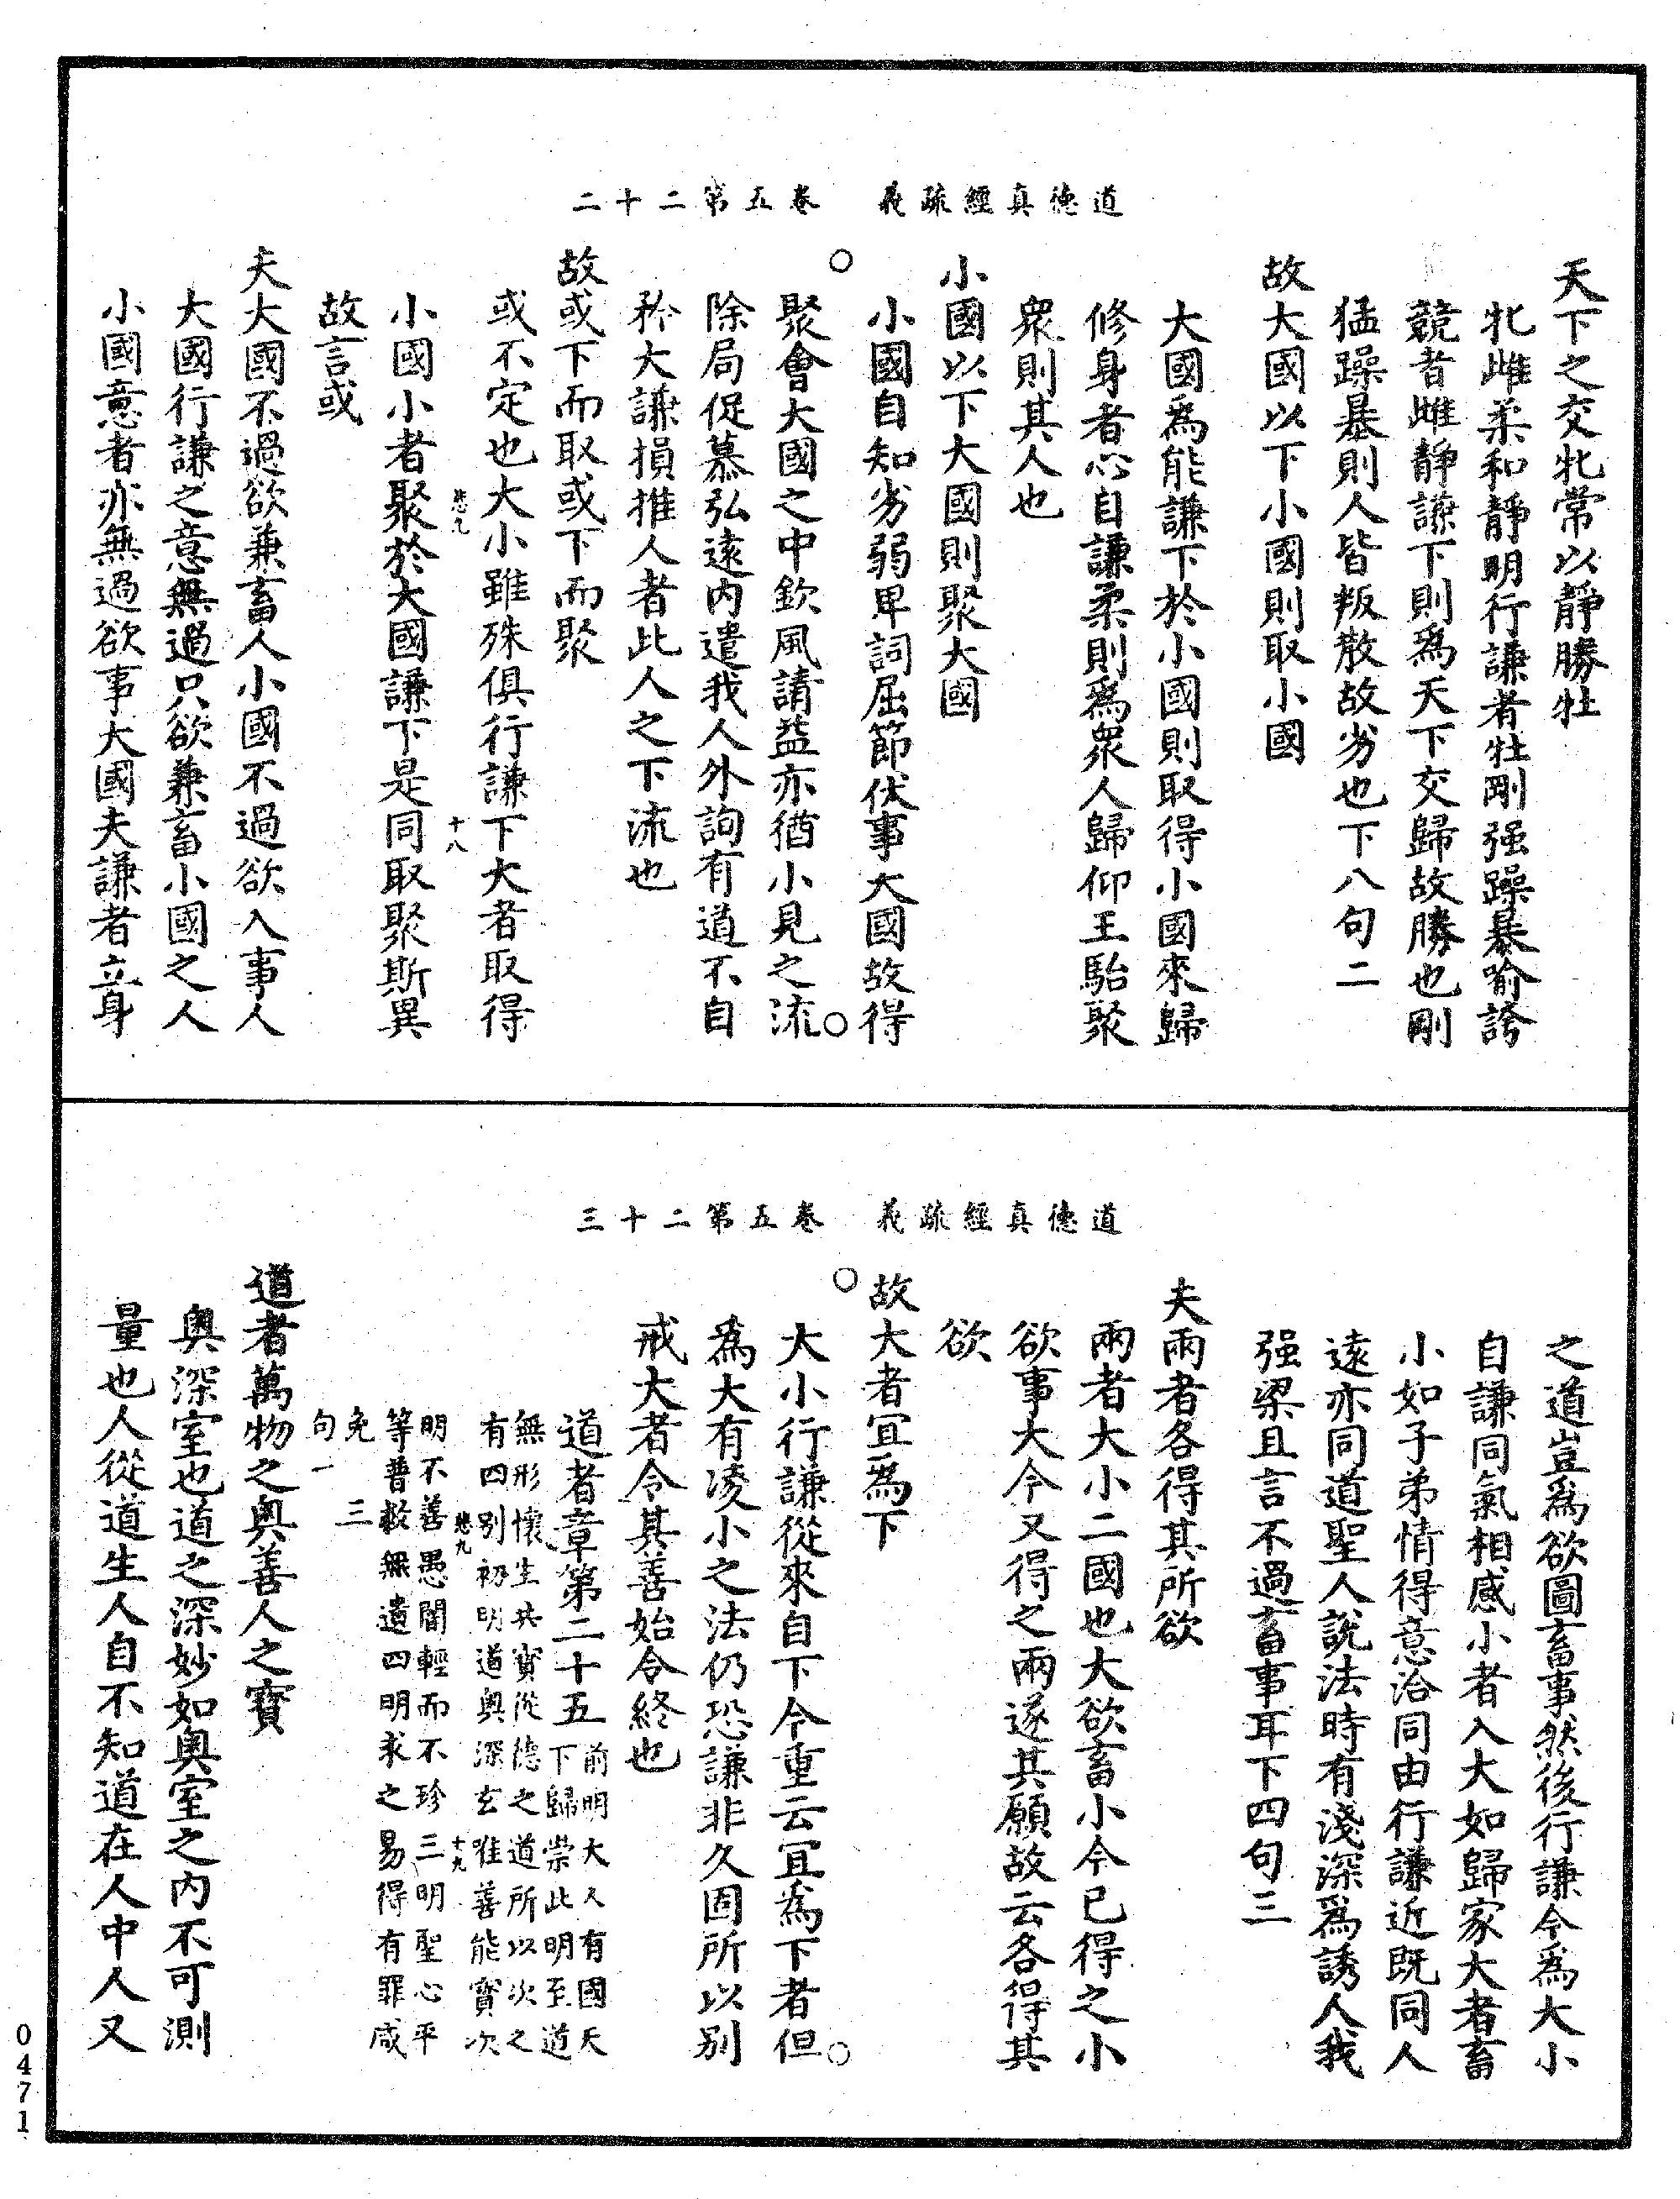 道德真經疏義　卷五第二十二
天下之交牝常以靜勝牡
牝雌柔和靜明行謙者牡剛强躁暴喻誇
競者雌靜謙下則爲天下交歸故勝也剛
猛躁暴則人皆叛散故劣也下八句二
故大國以下小國則取小國
大國爲能謙下於小國則取得小國來歸
修身者心自謙柔則爲衆人歸仰王駘聚
衆則其人也
小國以下大國則聚大國
小國自知劣弱卑詞屈節伏事大國故得
聚會大國之中欽風請益亦猶小見之流
除局促慕弘遠内遣我人外詢有道不自
矜大謙損推人者此人之下流也
故或下而取或下而聚
或不定也大小雖殊俱行謙下大者取得
悲九　十八
小國小者聚於大國謙下是同取聚斯異
故言或
夫大國不過欲兼畜人小國不過欲入事人
大國行謙之意無過只欲兼畜小國之人
小國意者亦無過欲事大國夫謙者立身
道德真經疏義　卷五第二十三
之道豈爲欲圖畜事然後行謙今爲大小
自謙同氣相感小者入大如歸家大者畜
小如子弟情得意洽同由行謙近既同人
遠亦同道聖人說法時有淺深爲誘人我
强梁且言不過畜事耳下四句三
夫兩者各得其所欲
兩者大小二國也大欲畜小今已得之小
欲事大今又得之兩遂其願故云各得其
欲
故大者宜爲下
大小行謙從來自下今重云宜爲下者但
爲大有凌小之法仍恐謙非久固所以别
戒大者令其善始令終也
道者章第二十五
前明大人有國天
下歸崇此明至道
無形懷生共寶從德之道所以次之
有四别初明道奥深玄唯善能寶次
悲九　十九
明不善愚闇輕而不珍三明聖心平
等普救無遺四明求之易得有罪咸
免　三
句一
道者萬物之奥善人之寶
奥深室也道之深妙如奥室之内不可測
量也人從道生人自不知道在人中人又
0471